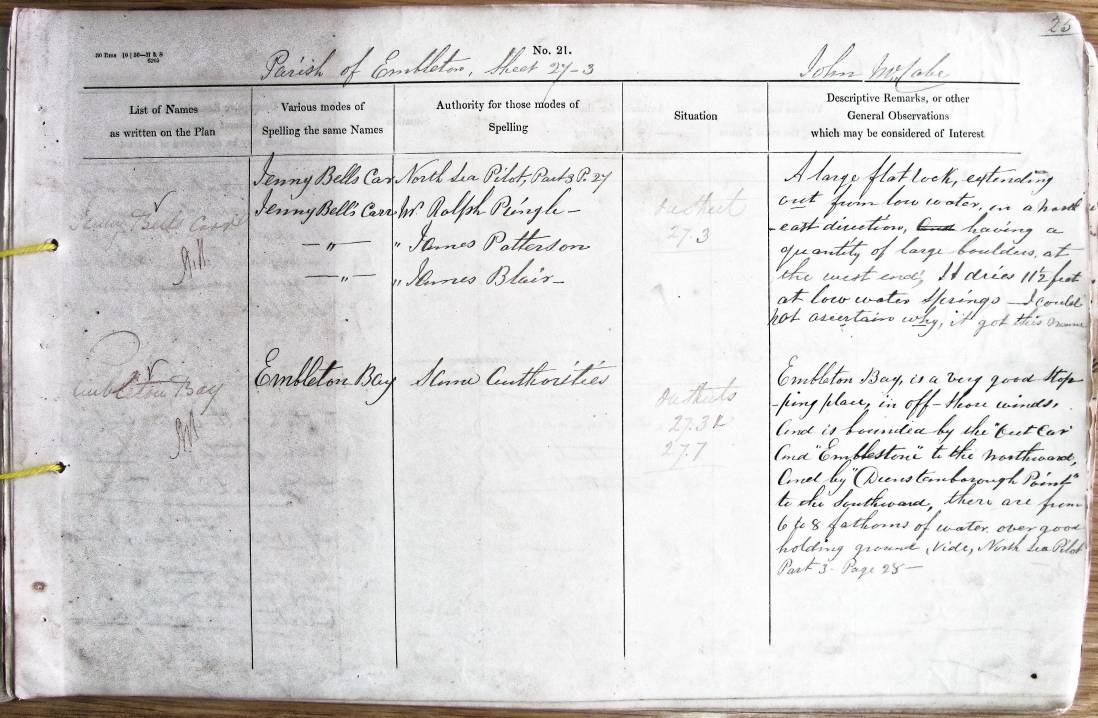 25
No. 21.
Parish of Embleton, Sheet 27-3
John McCabe
List of Names
as written on the Plan
Various modes of
Spelling the same Names
Authority for those modes of
Spelling
Situation
Descriptive Remarks, or other
General Observations
which may be considered of Interest
Jenny Bells Carr
Jenny Bells Car
North Sea Pilot, Part 3 P. 27
Jenny Bell's Carr
W. Ralph Pringle -
— " —
" James Patterson
— " —
" James Blair -
On Sheet
27.3
A large flat rock, extending
out from low water, in a north
-east direction, and having a
quantity of large boulders, at
the west end; It dries 11½ feet
at low water Springs - I could
not ascertain why, it got this name
Embleton Bay
Embleton Bay
Same Authorities
On Sheets
27.3 &
27.7
Embleton Bay, is a very good Stop-
-ping place, in off-shore winds.
And is bounded by the "Out Car"
And "Emblestone" to the Northward,
And by "Dunstanborough Point"
to the Southward, there are from
6 to 8 fathoms of water over good
holding ground, Vide, North Sea Pilot
Part 3 Page 28 -